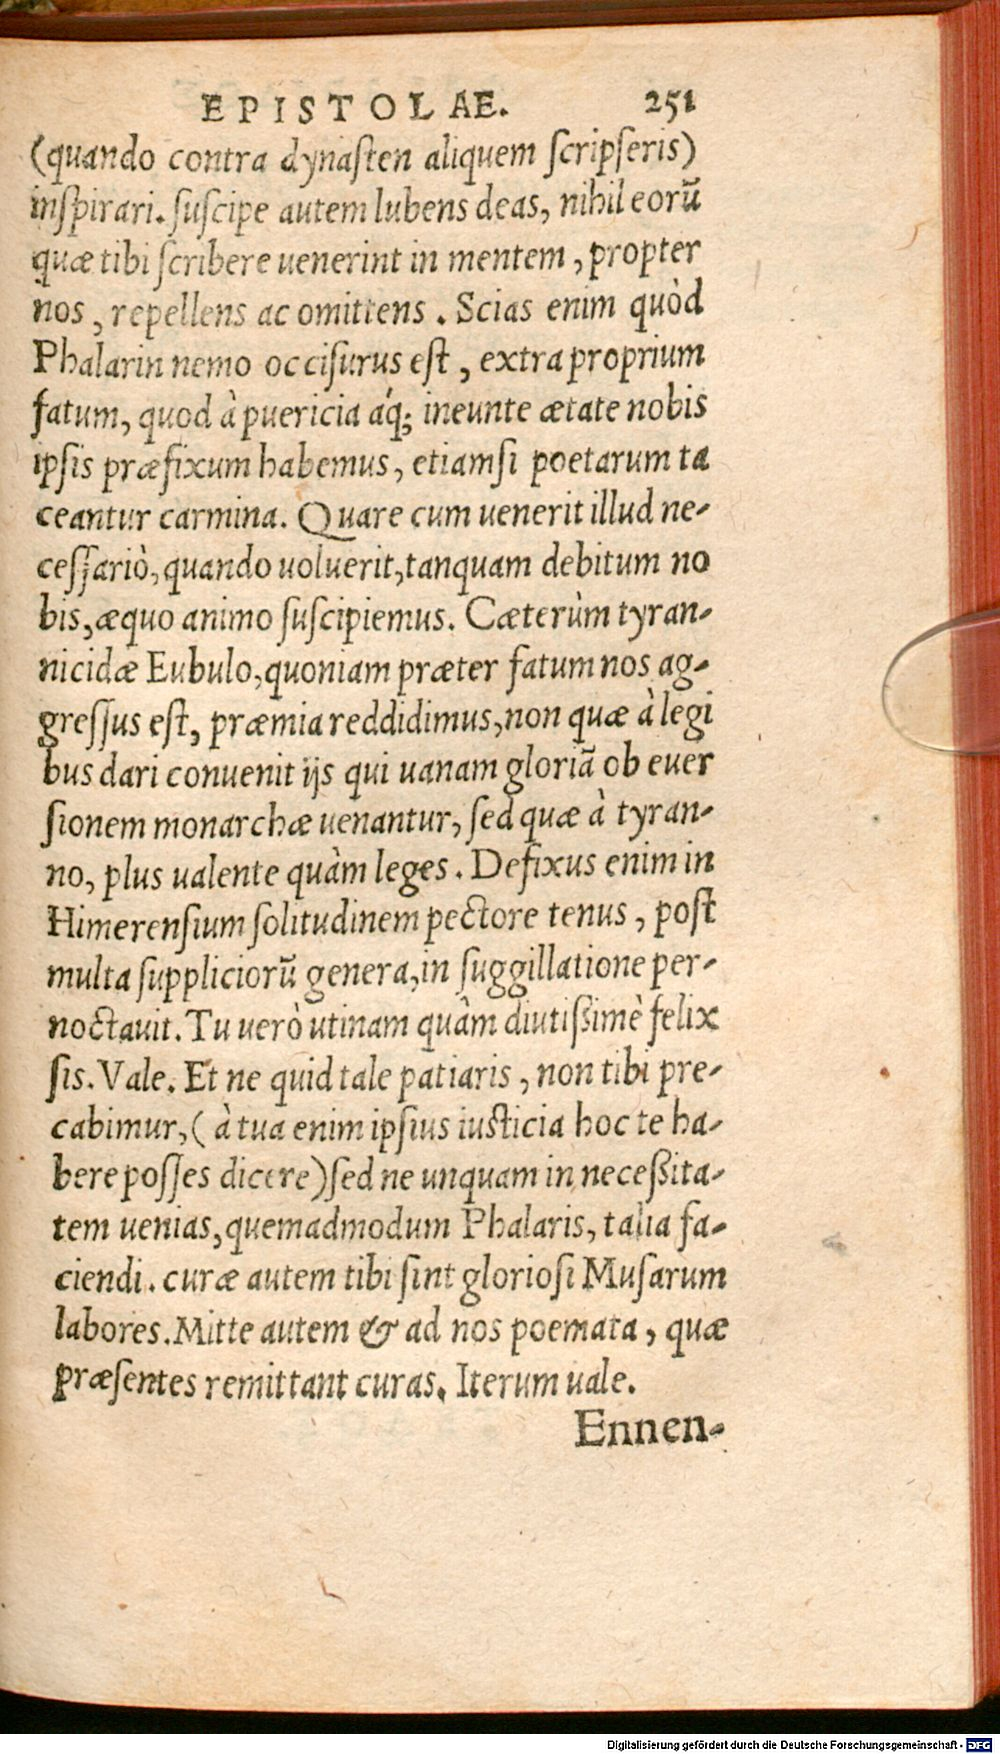 EPISTOLAE. 251
(quando contra dynaſten aliquem ſcripſeris)
inſpirari. ſuſcipe autem lubens deas, nihil eorū
quæ tibi ſcribere uenerint in mentem, propter
nos, repellens ac omittens. Scias enim quòd
Phalarin nemo occiſurus eſt, extra proprium
fatum, quod à puericia áq; ineunte ætate nobis
ipſis præfixum habemus, etiamſi poetarum ta
ceantur carmina. Quare cum uenerit illud ne-
ceſſariò, quando uoluerit, tanquam debitum no
bis, æquo animo ſuſcipiemus. Cæterùm tyran-
nicidæ Eubulo, quoniam præter fatum nos ag-
greſſus eſt, præmia reddidimus, non quæ à legi
bus dari conuenit ijs qui uanam gloriā ob euer
ſionem monarchæ uenantur, ſed quæ à tyran-
no, plus ualente quàm leges. Defixus enim in
Himerenſium ſolitudinem pectore tenus, poſt
multa ſuppliciorū genera, in ſuggillatione per-
noctauit. Tu uerò utinam quàm diutißimè felix
ſis. Vale. Et ne quid tale patiaris, non tibi pre-
cabimur, (à tua enim ipſius iuſticia hoc te ha-
bere poſſes dicere) ſed ne unquam in neceßita-
tem uenias, quemadmodum Phalaris, talia fa-
ciendi. curæ autem tibi ſint glorioſi Muſarum
labores. Mitte autem & ad nos poemata, quæ
præſentes remittant curas. Iterum uale.
Ennen-
Digitalisierung gefördert durch die Deutsche Forschungsgemeinschaft - DFG